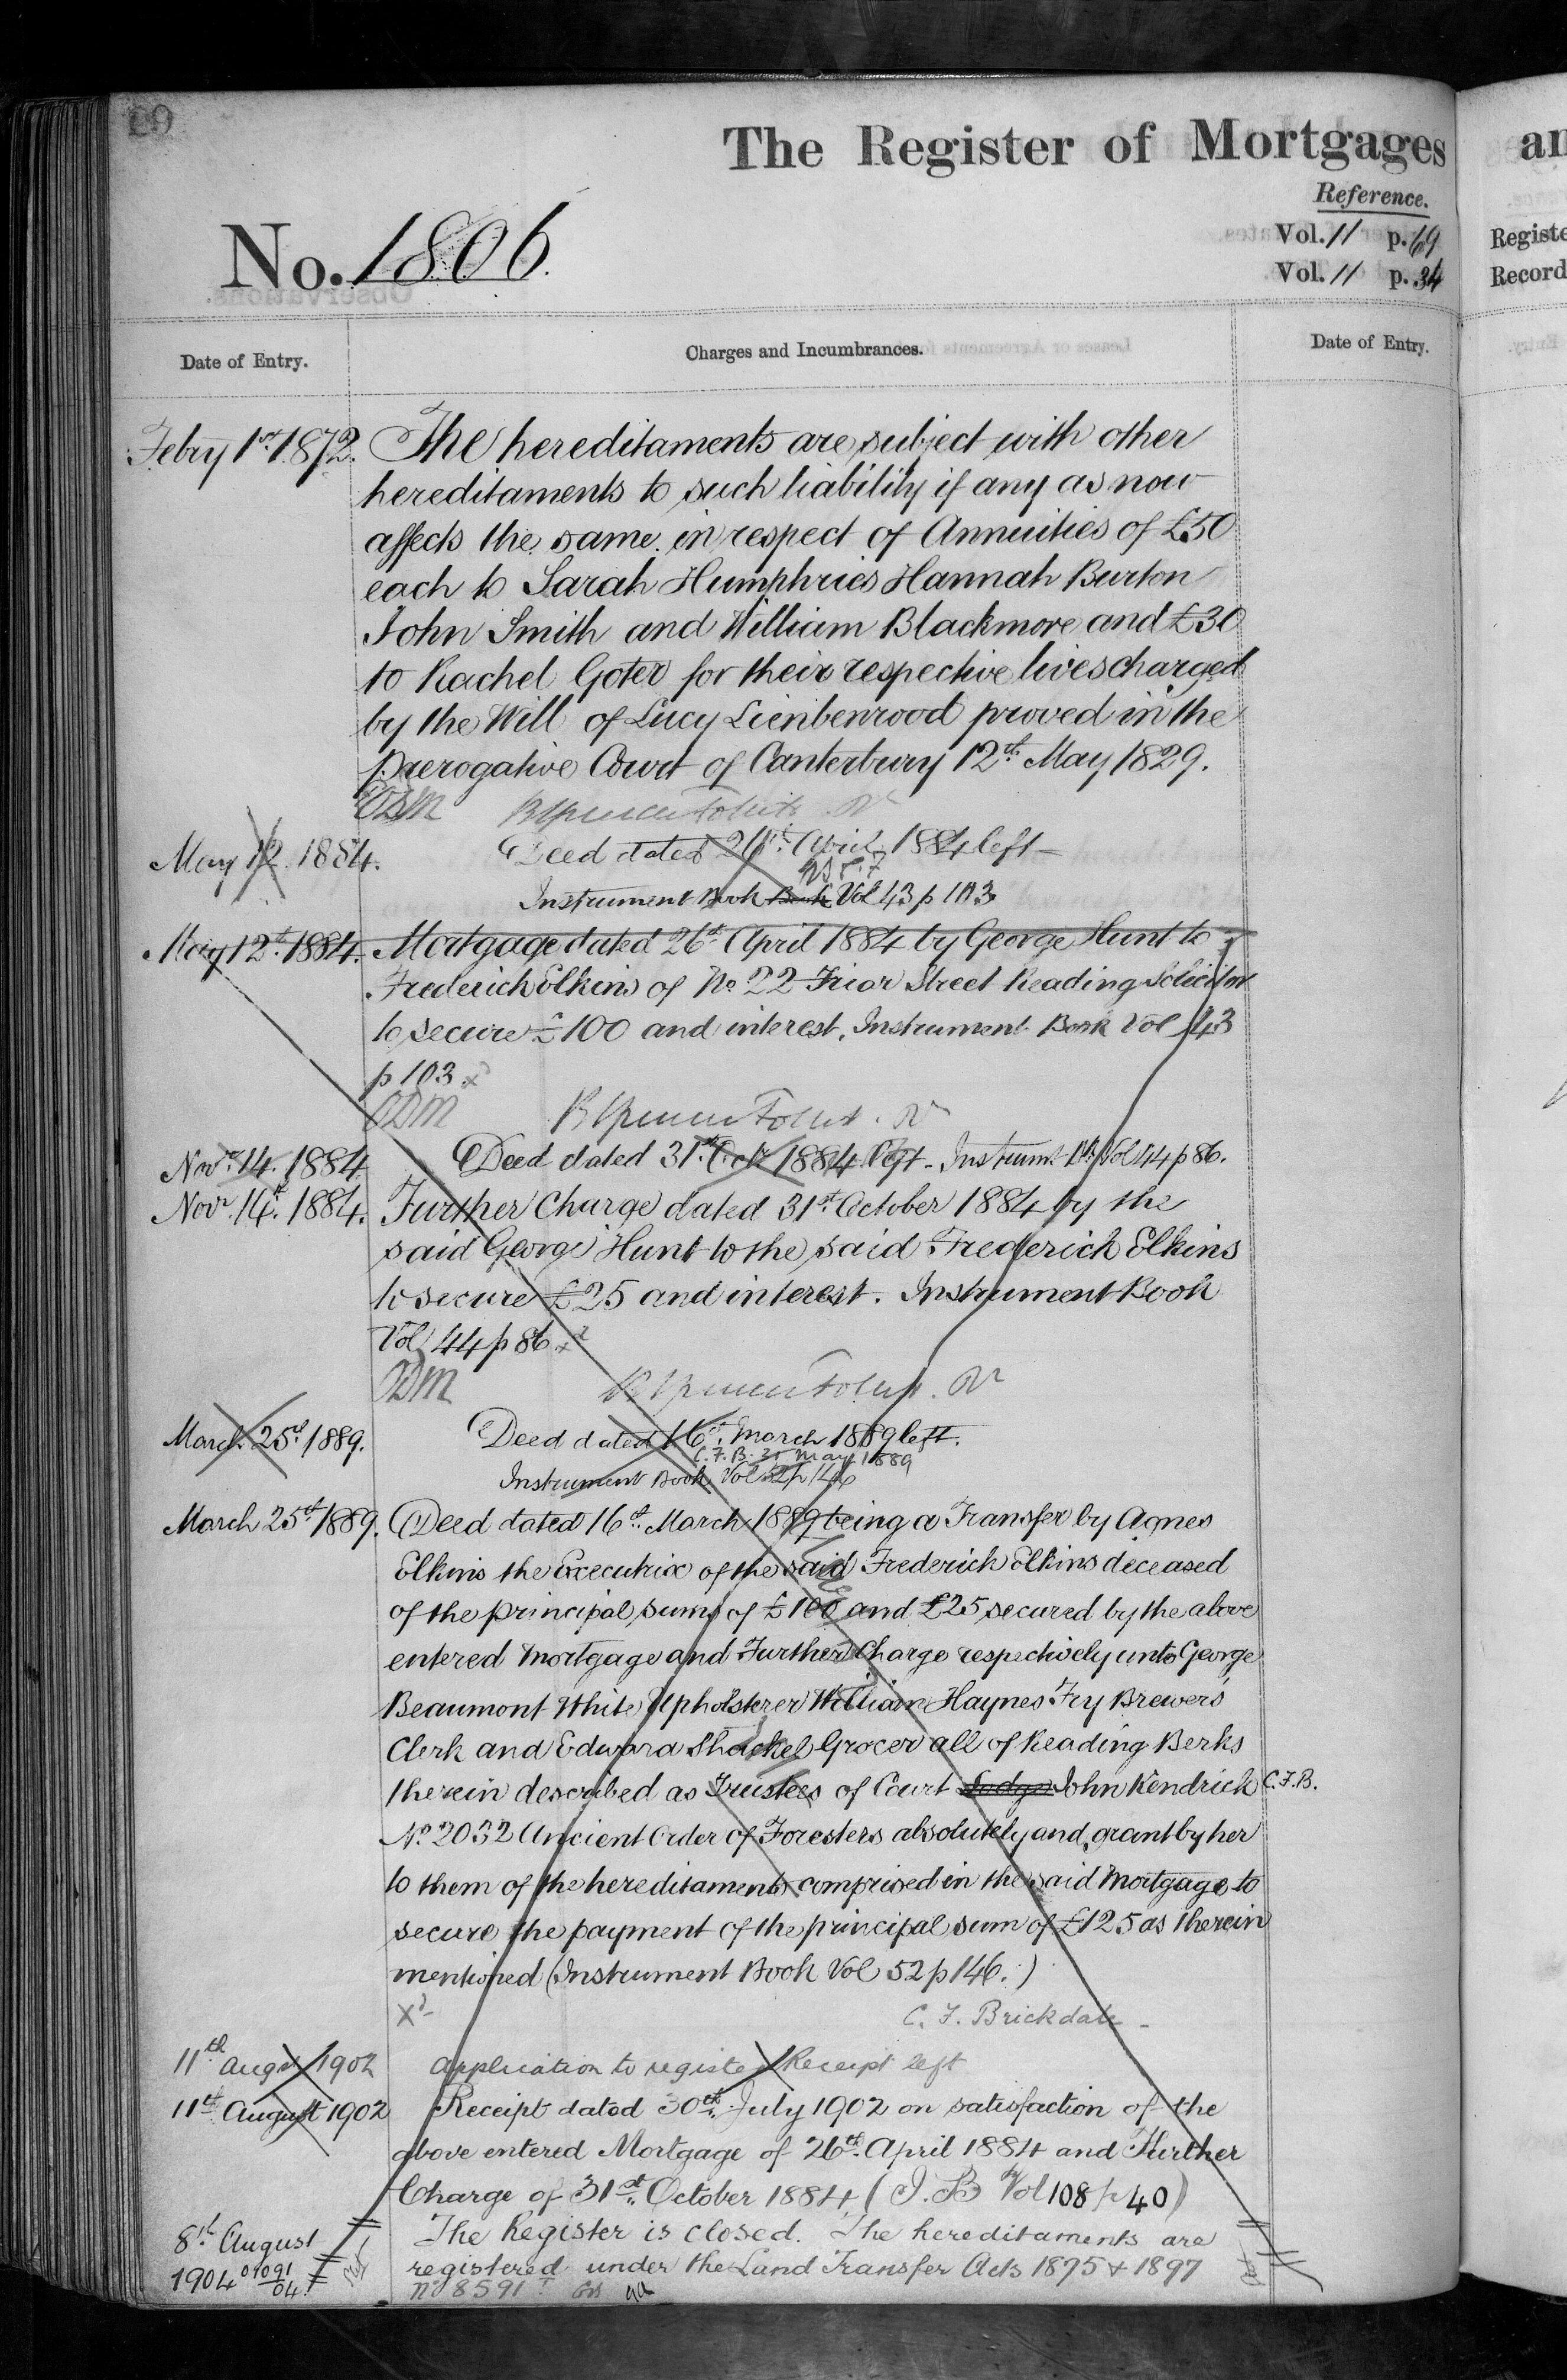 The Register of Mortgages
an
Reference.
Vol. 11 p. 69
Registe
Vol. 11 p. 34
Record
No. 1806.
Date of Entry.
Charges and Incumbrances.
Date of Entry.
Febry 1st 1872. The hereditaments are subject with other
hereditaments to such liability if any as now
affects the same in respect of Annuities of £50
each to Sarah Humphries Hannah Burton
John Smith and William Blackmore and £30
to Rachel Goter for their respective lives charged
by the Will of Lucy Lienbenrood proved in the
Prerogative Court of Canterbury 12th May 1829.
ODM
May 12. 1884. Deed dated 26th April 1884 left
Instrument Book Book Vol 43 p 103
May 12th 1884. Mortgage dated 26th April 1884 by George Hunt to
Frederick Elkins of No 22 Friar Street Reading Solicitor
to secure £100 and interest. Instrument Book Vol 43
p 103 x
ODM
Novr 14. 1884 Deed dated 31st Octr 1884 left. Instrumt Bk Vol 44 p 86.
Novr 14th 1884. Further Charge dated 31st October 1884 by the
said George Hunt to the said Frederick Elkins
to secure £25 and interest. Instrument Book
Vol 44 p 86 x
ODM
March 25th 1889. Deed dated 16th March 1889 left.
C. F. B. 25 May 1889
Instrument Book Vol 52 p 146
March 25th 1889. Deed dated 16th March 1889 being a Transfer by Agnes
Elkins the Executrix of the said Frederick Elkins deceased
of the principal sums of £100 and £25 secured by the above
entered Mortgage and Further Charge respectively unto George
Beaumont White Upholsterer William Haynes Fry Brewer's
Clerk and Edward Shackel Grocer all of Reading Berks
therein described as Trustees of Court Lodge John Kendrick C.F.B.
No 2032 Ancient Order of Foresters absolutely and grant by her
to them of the hereditaments comprised in the said Mortgage to
secure the payment of the principal sum of £125 as therein
mentioned (Instrument Book Vol 52 p 146.)
C. F. Brickdale
11th Augst 1902 Application to register Receipt left
11th August 1902 Receipt dated 30th July 1902 on satisfaction of the
above entered Mortgage of 26th April 1884 and Further
Charge of 31st October 1884 (I. B Vol 108 p 40)
8th August The Register is closed. The hereditaments are
1904 registered under the Land Transfer Acts 1875 & 1897
No 8591